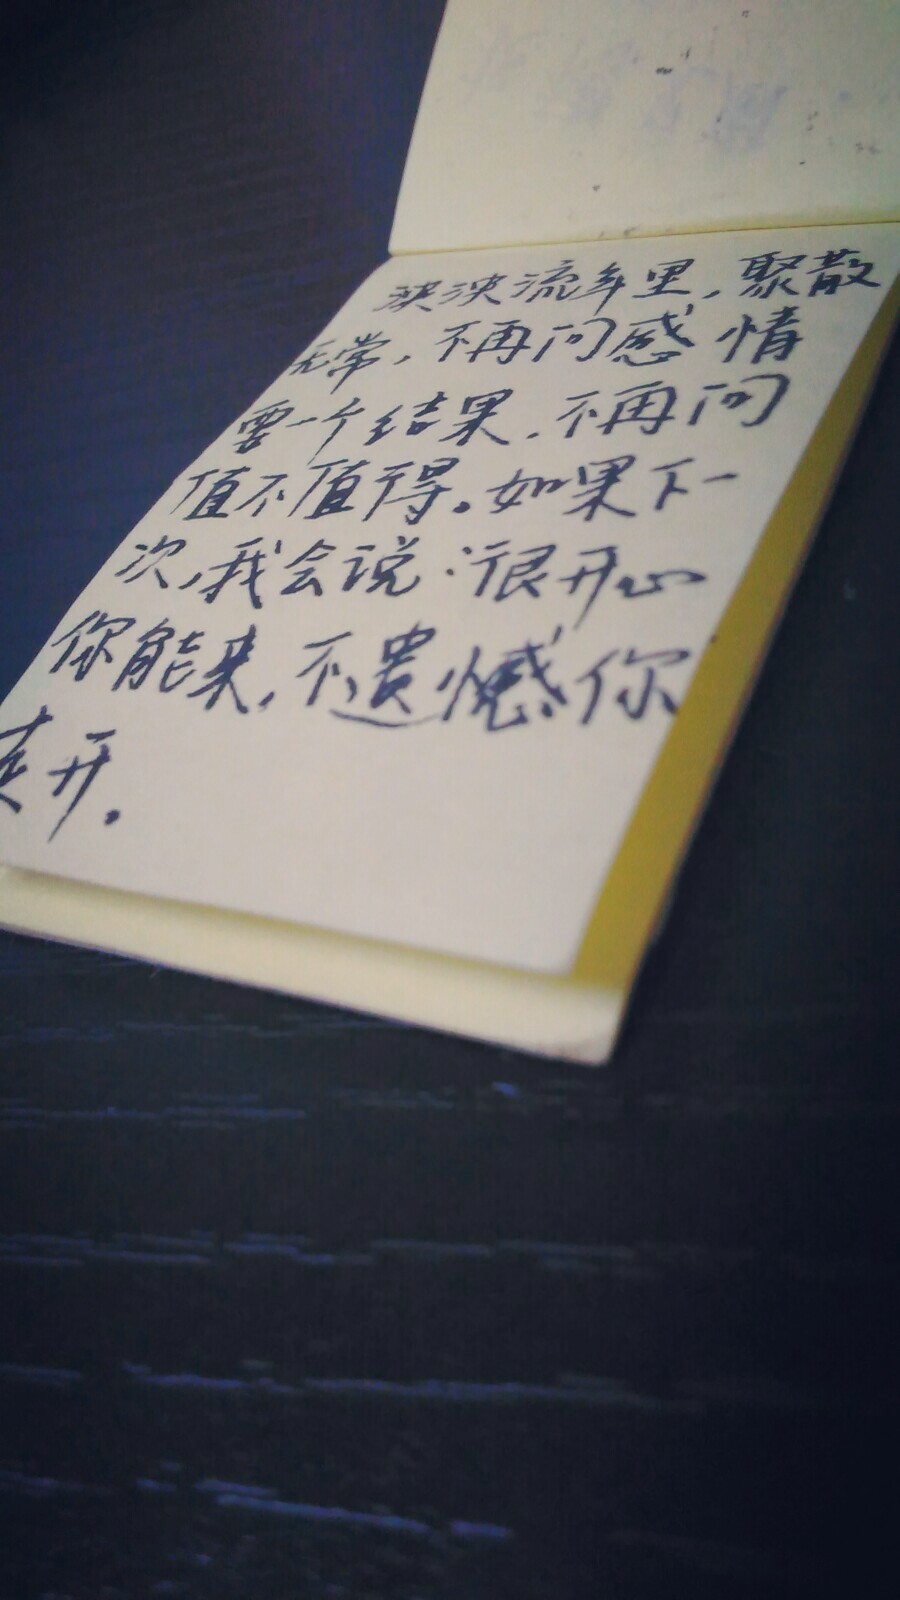 泱泱流年里，聚散
无常，不再问感情
要一个结果，不再问
值不值得。如果下一
次，我会说：很开心
你能来，不遗憾你
走开。